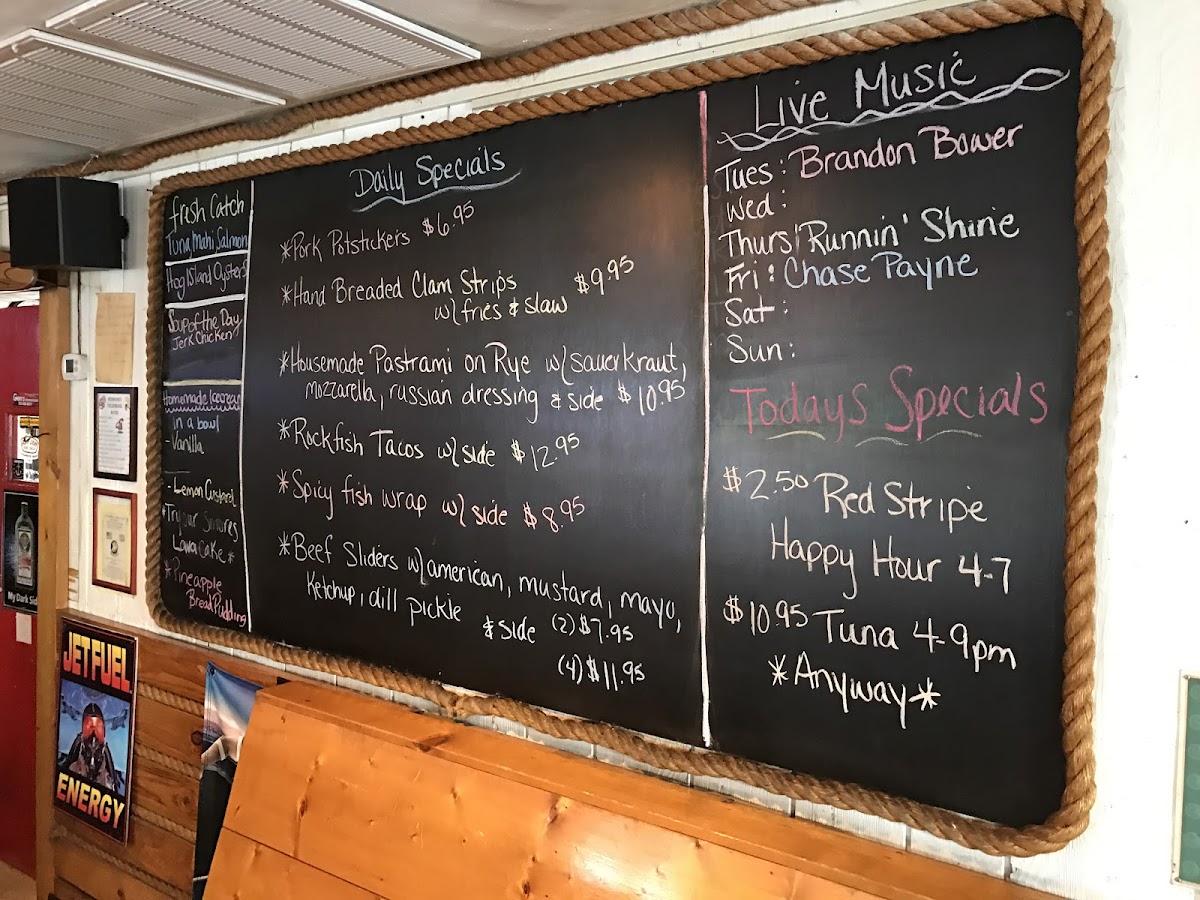 fresh Catch
Tuna Mahi Salmon
Hog Island Oysters
Soup of the Day
Jerk Chicken
Homemade Icecream
in a bowl
- Vanilla
- Lemon Custard
*Try our Smores
Lava Cake*
*Pineapple
Bread Pudding
Daily Specials
*Pork Potstickers $6.95
*Hand Breaded Clam Strips $9.95
w/ fries & slaw
*Housemade Pastrami on Rye w/ sauerkraut,
mozzarella, russian dressing & side $10.95
*Rockfish Tacos w/ side $12.95
*Spicy fish wrap w/ side $8.95
*Beef Sliders w/ american, mustard, mayo,
Ketchup, dill pickle & side (2) $7.95
(4) $11.95
Live Music
Tues: Brandon Bower
Wed:
Thurs/ Runnin' Shine
Fri: Chase Payne
Sat:
Sun:
Todays Specials
$2.50 Red Stripe
Happy Hour 4-7
$10.95 Tuna 4-9pm
*Anyway*
JET FUEL
ENERGY
My Dark Sid